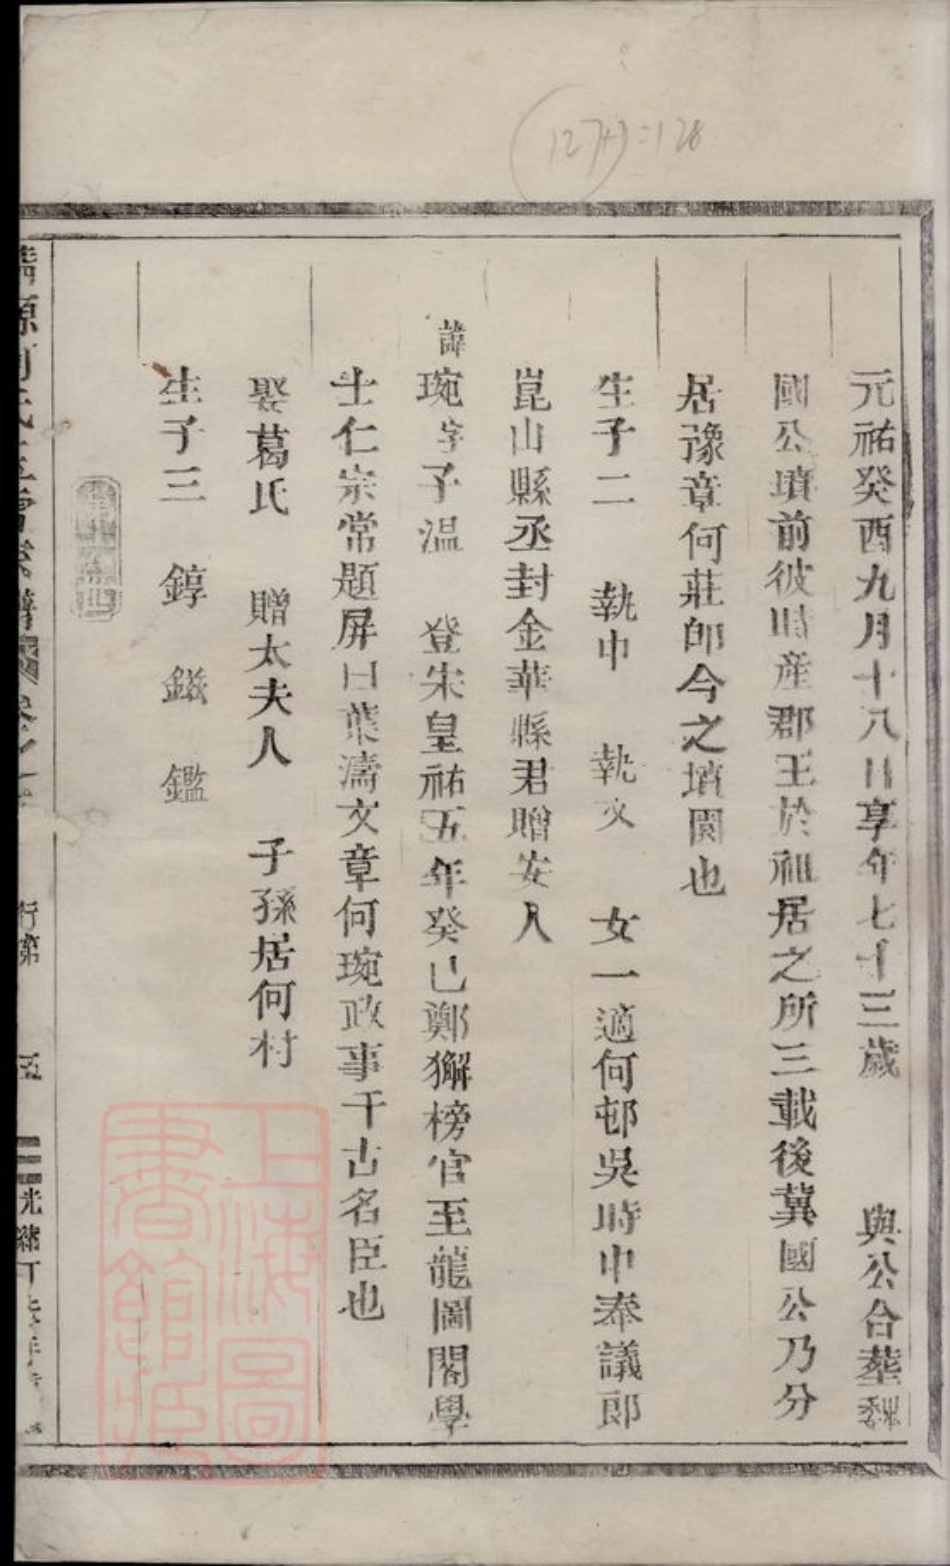 元祐癸酉九月十八日享年七十三歲　與公合塟魏
國公墳前彼時産郡王於祖居之所三載後冀國公乃分
居豫章何莊卽今之墳園也
生子二　執中　執文　女一適何邨吳時中奉議郎
崑山縣丞封金華縣君贈安人
諱琬字子温　登宋皇祐五年癸巳鄭獬榜官至龍圖閣學
士仁宗常題屏曰葉濤文章何琬政事千古名臣也
娶葛氏　贈太夫人　子孫居何村
生子三　錞　鎡　鑑
行第
五
光緒丁
上海圖
書館藏
127+1=128